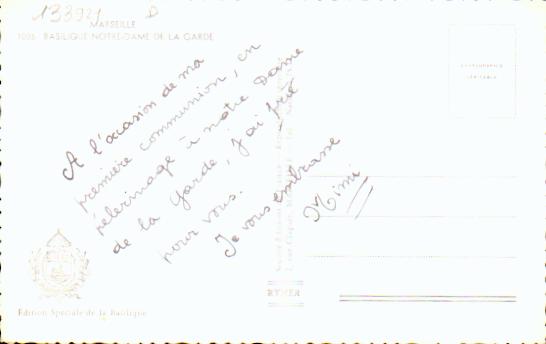 133921 D
MARSEILLE
1036 BASILIQUE NOTRE-DAME DE LA GARDE
A l'occasion de ma
première communion, en
pélerinage à notre Dame
de la Garde, j'ai prié
pour vous.
Je vous embrasse
Mimi
PHOTOGRAPHIE
VÉRITABLE
RYNER
Édition Spéciale de la Basilique